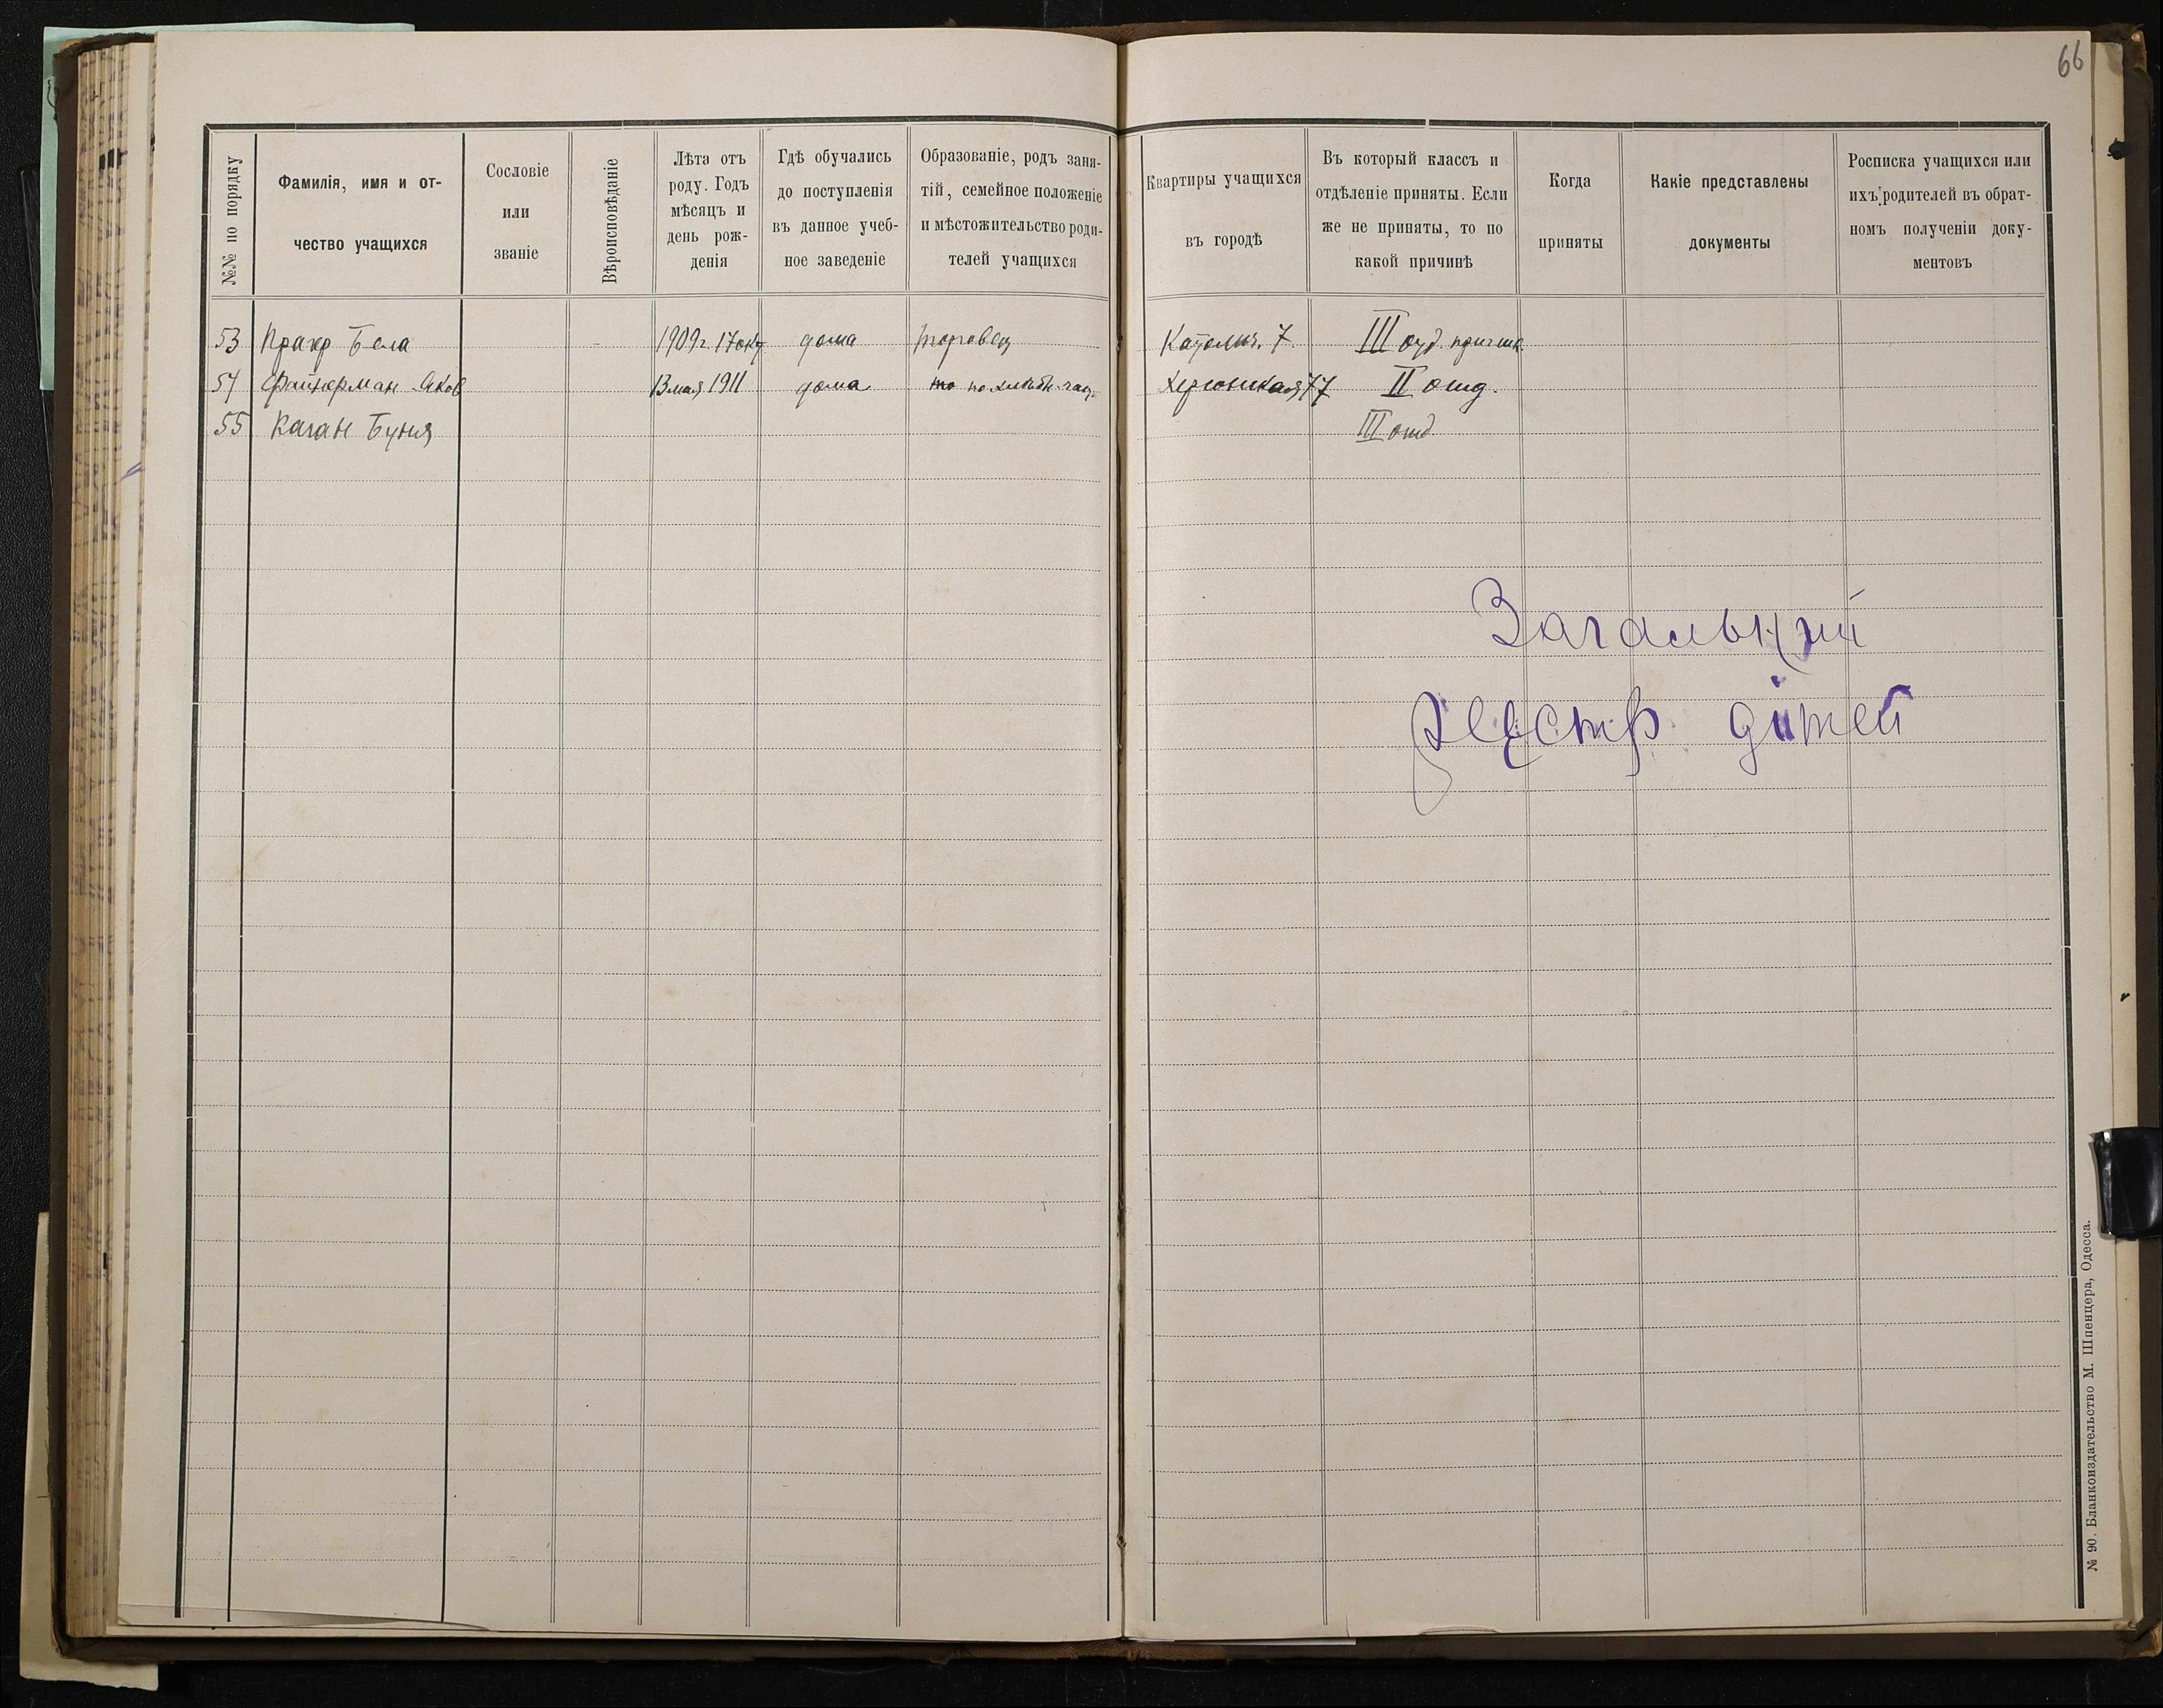 66
№№ по порядку
Фамилія, имя и от-
чество учащихся
Сословіе
или
званіе
Вѣроисповѣданіе
Лѣта отъ
роду. Годъ
мѣсяцъ и
день рож-
денія
Гдѣ обучались
до поступленія
въ данное учеб-
ное заведеніе
Образованіе, родъ заня-
тій, семейное положеніе
и мѣстожительство роди-
телей учащихся
Квартиры учащихся
въ городѣ
Въ который классъ и
отдѣленіе приняты. Если
же не приняты, то по
какой причинѣ
Когда
приняты
Какіе представлены
документы
Росписка учащихся или
ихъ родителей въ обрат-
номъ полученіи доку-
ментовъ
53 Бела 1909 г. 17 дома торговец 7. III
54 Файнерман Яков 13 мая 1911 дома по Херсонская 77 II отд.
55 Каган Буния III отд
Загальний
реєстр дітей
№ 90. Бланкоиздательство М. Шпенцера, Одесса.